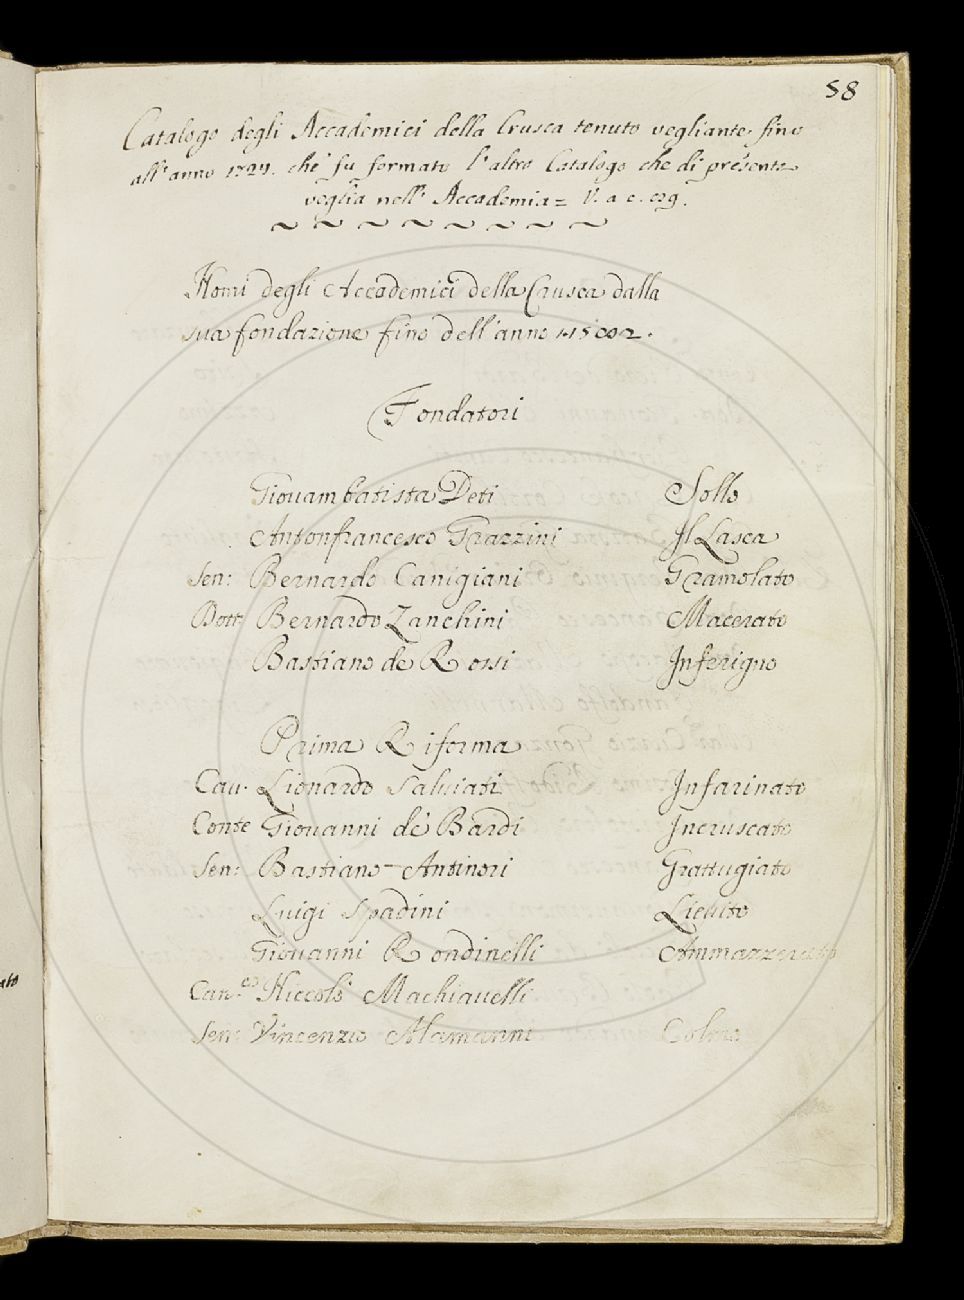 58
Catalogo degli Accademici della Crusca tenuto vegliante fino
all'anno 1727. che fu formato l'altro Catalogo che di presente
veglia nell' Accademia = V. a c.
Nomi degli Accademici della Crusca dalla
sua fondazione fino dell'anno
Fondatori
Giouambatista Deti Sollo
Antonfrancesco Grazzini Il Lasca
Sen: Bernardo Canigiani Gramolato
Dott: Bernardo Zanchini Macerato
Bastiano de Rossi Inferigno
Prima Riforma
Cau. Lionardo Saluiati Infarinato
Conte Giouanni de' Bardi Incruscato
Sen: Bastiano Antinori Grattugiato
Luigi Spadini Lieuito
Giouanni Rondinelli Ammazzerato
Can.co Niccolò Machiauelli
Sen: Vincenzio Alamanni